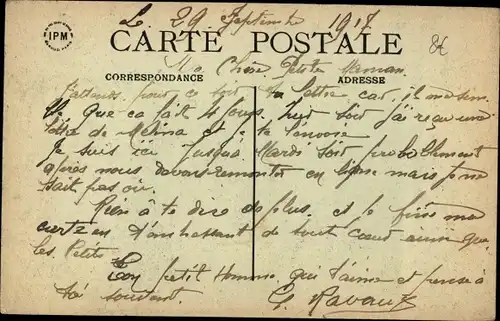 Le 29 Septembre 1917
IPM
CARTE POSTALE
Ma Chère Petite Maman
CORRESPONDANCE
ADRESSE
J'attends pour ce soir ta lettre car il me sem
ble que ça fait 4 jours. Hier soir j'ai reçu une
lettre de Melina et je te l'envoie
Je suis ici jusqu'à Mardi soir probablement
après nous devons remonter en ligne mais je ne
sait pas où.
Rien à te dire de plus et je finis ma
carte en t'embrassant de tout cœur ainsi que
les Petits
Ton petit Homme qui t'aime et pense à
toi souvent. G. Ravaux